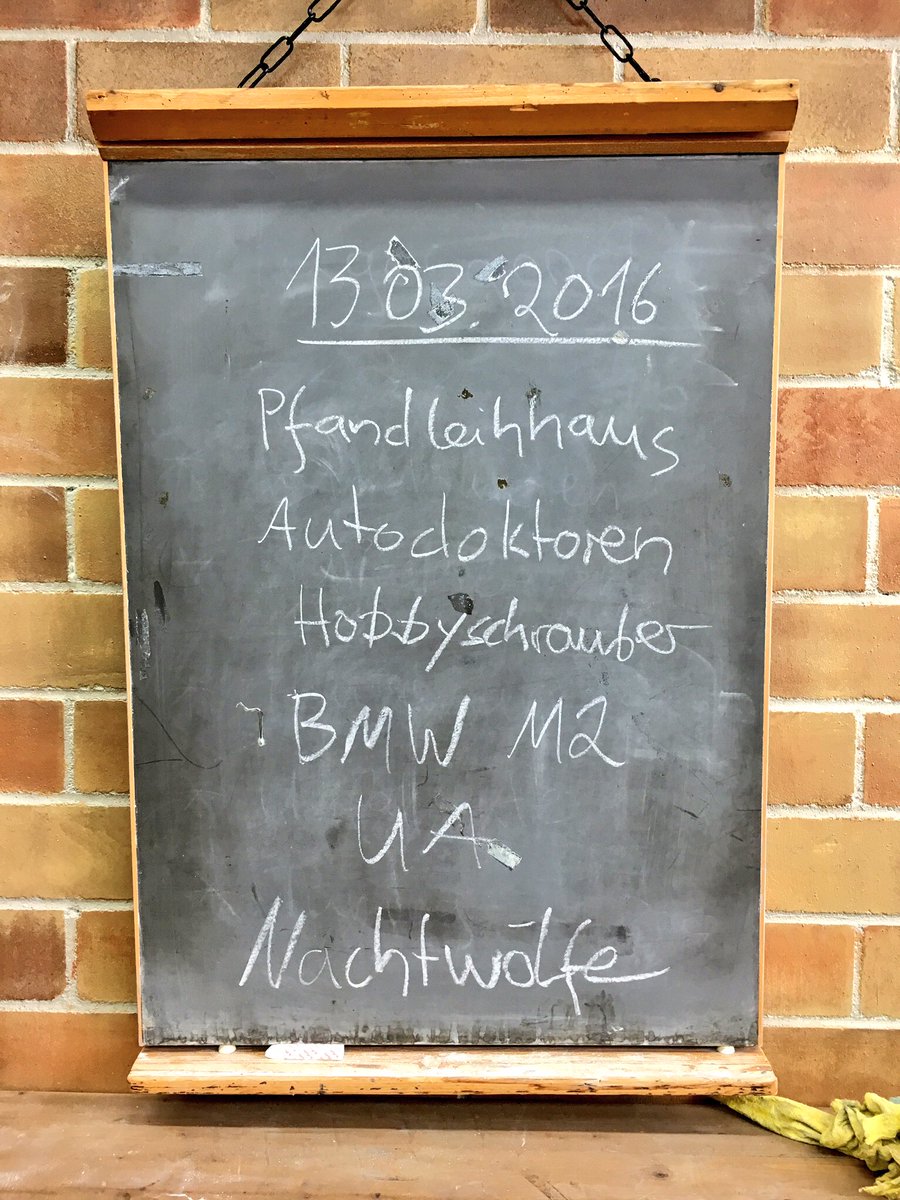 13 03. 2016
Pfandleihhaus
Autodoktoren
Hobbyschrauber
BMW M2
UA
Nachtwölfe